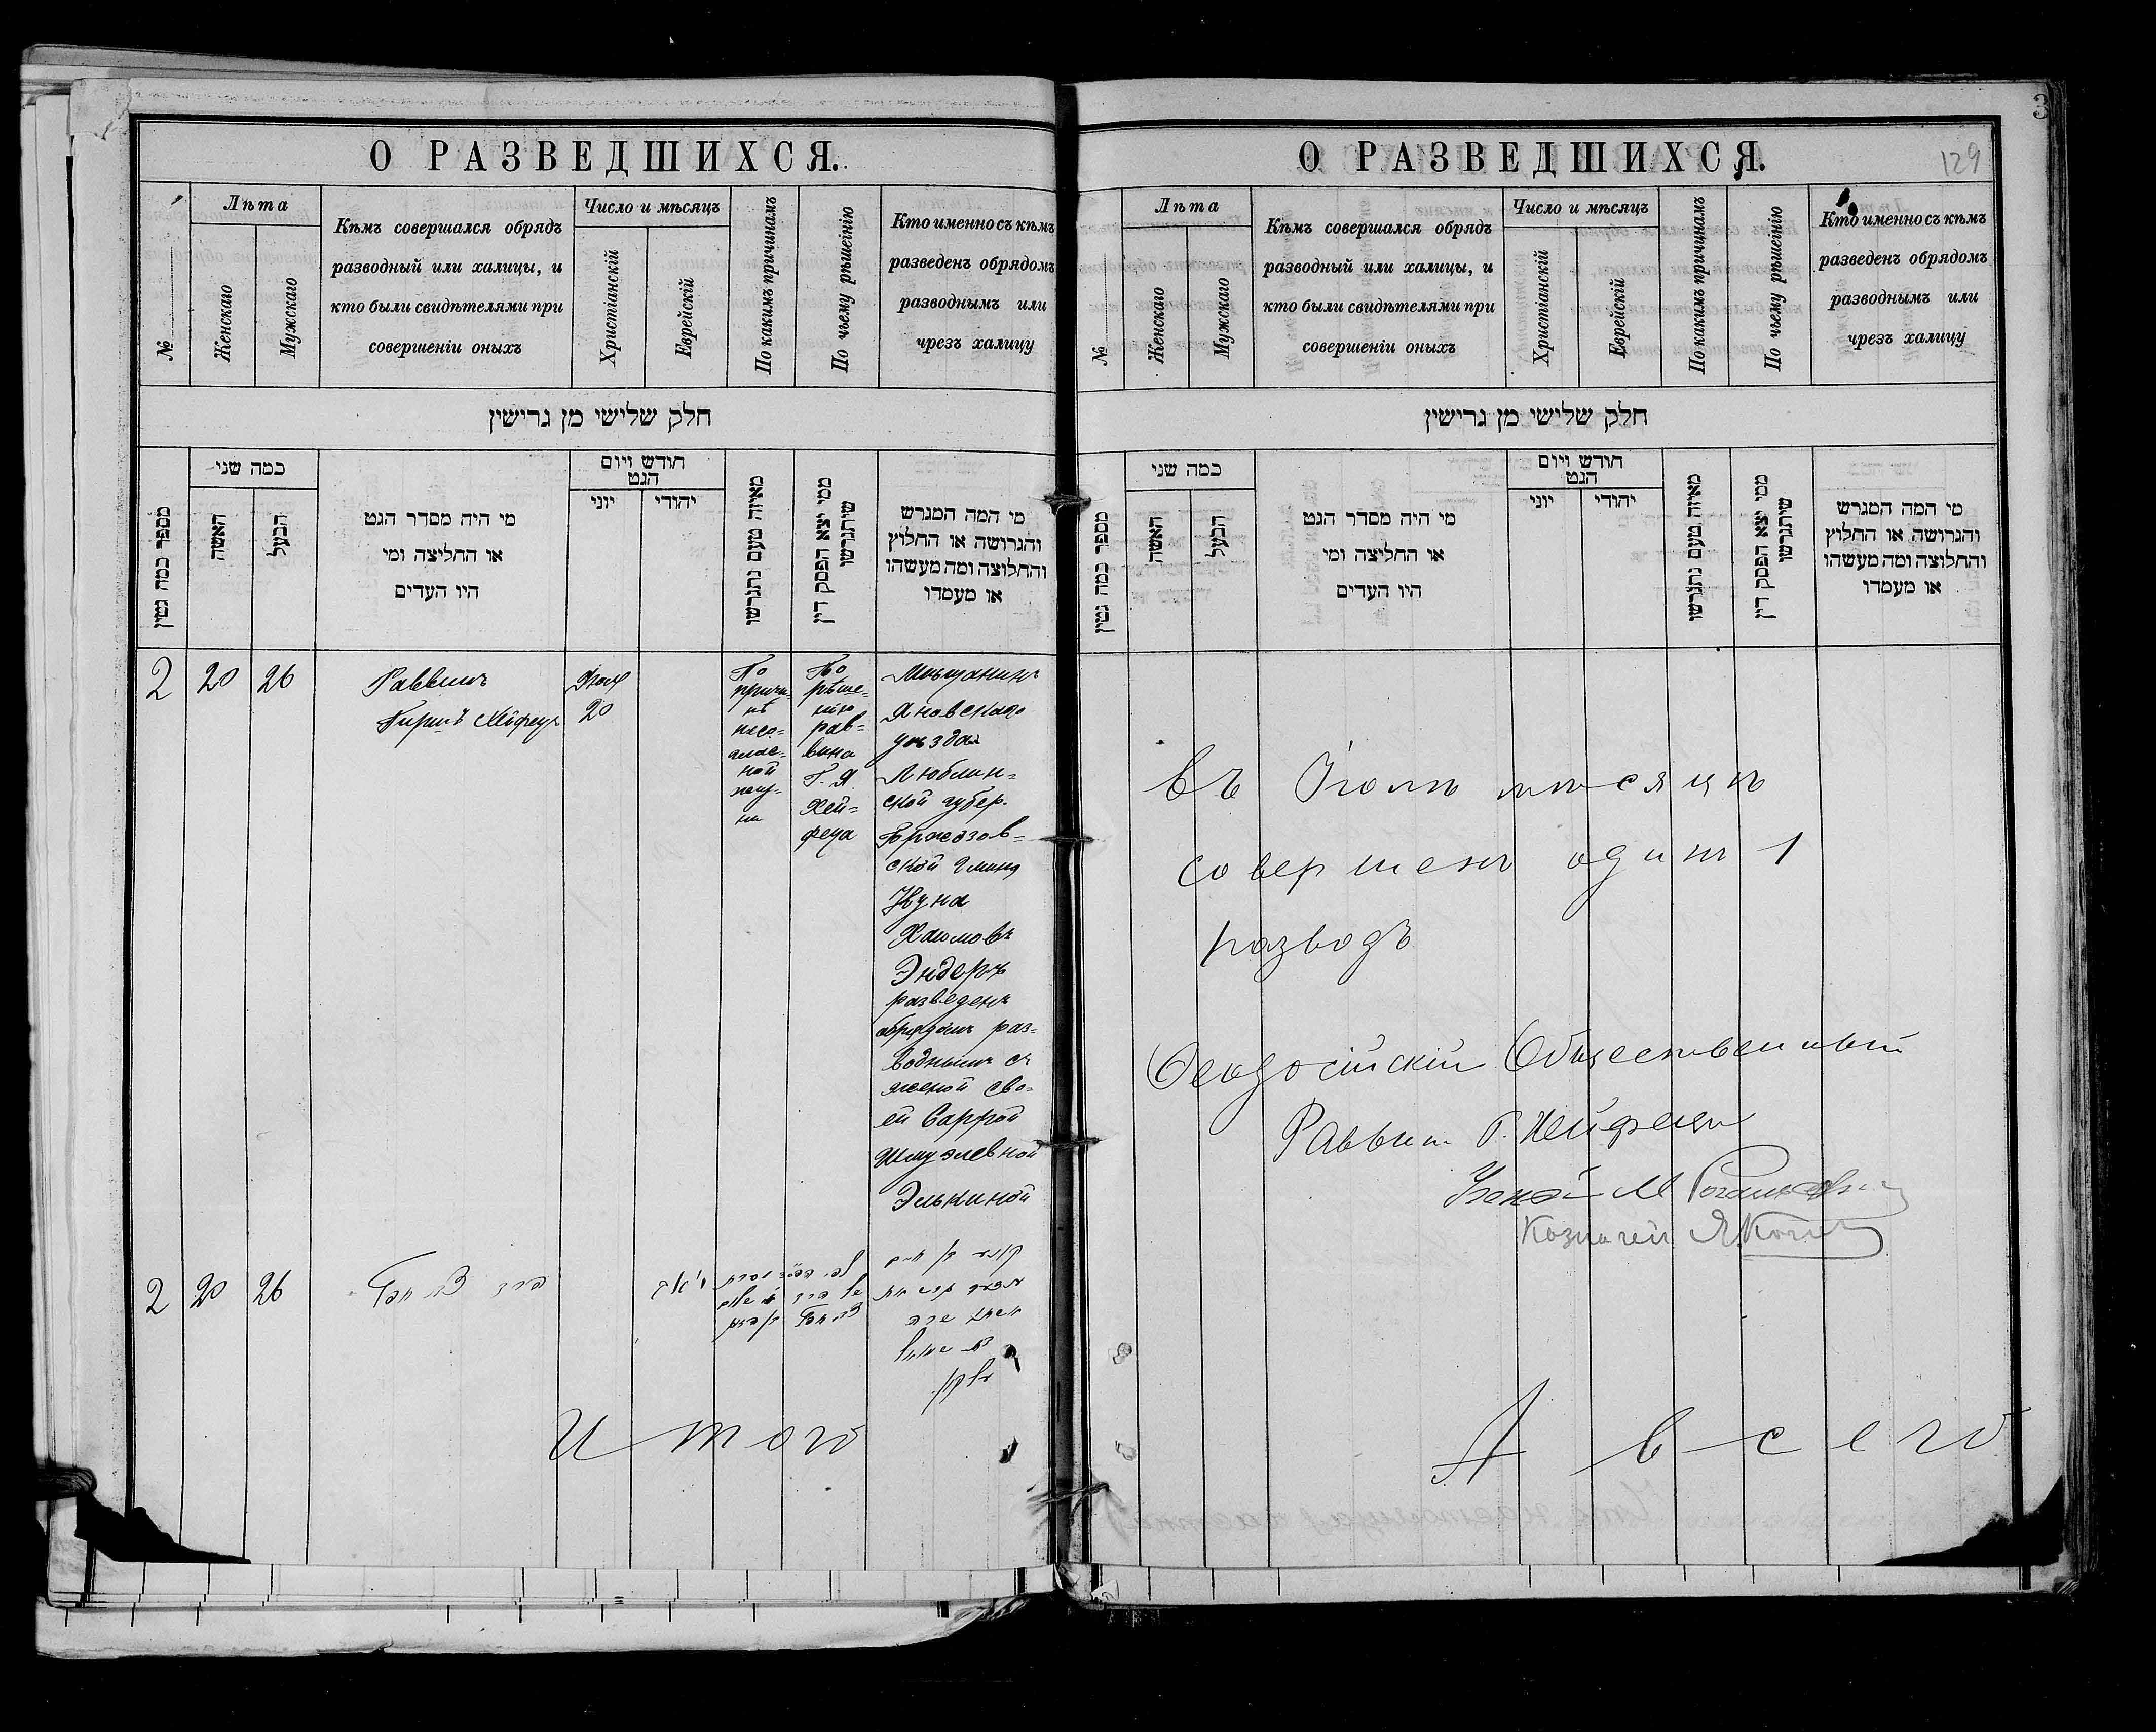 О РАЗВЕДШИХСЯ.
№
Лѣта
Женскаго
Мужскаго
Кѣмъ совершался обрядъ
разводный или халицы, и
кто были свидѣтелями при
совершеніи оныхъ
Число и мѣсяцъ
Христіанскій
Еврейскій
По какимъ причинамъ
По чьему рѣшеінію
Кто именно съ кѣмъ
разведенъ обрядомъ
разводнымъ или
чрезъ халицу
חלק שלישי מן גרישין
מספר כמה גטין
כמה שני
האשה
הבעל
מי היה מסדר הגט
או החליצה ומי
היו העדים
חודש ויום
הגט
יוני
יהודי
מאיזה טעם נתגרשו
ממי יצא הפסק דין
שיתגרשו
מי המה המגרש
והגרושה או החלוץ
והחלוצה ומה מעשהו
או מעמדו
2
20
26
Раввинъ
Гиршъ Хейфецъ
20
По
причи-
нѣ
несо-
глас-
ной
жиз-
ни
По
рѣше-
нію
рав-
вина
Г. Я.
Хей-
феца
Мѣщанинъ
Яновскаго
уѣзда
Люблин-
ской губер.
ской гмины
Хаимовъ
Эндеръ
разведенъ
обрядомъ раз-
воднымъ съ
женой сво-
ей Саррой
Шмуэлевной
Элькиной
2
20
26
הרב
Итого
3
129
О РАЗВЕДШИХСЯ.
№
Лѣта
Женскаго
Мужскаго
Кѣмъ совершался обрядъ
разводный или халицы, и
кто были свидѣтелями при
совершеніи оныхъ
Число и мѣсяцъ
Христіанскій
Еврейскій
По какимъ причинамъ
По чьему рѣшеінію
Кто именно съ кѣмъ
разведенъ обрядомъ
разводнымъ или
чрезъ халицу
חלק שלישי מן גרישין
מספר כמה גטין
כמה שני
האשה
הבעל
מי היה מסדר הגט
או החליצה ומי
היו העדים
חודש ויום
הגט
יוני
יהודי
מאיזה טעם נתגרשו
ממי יצא הפסק דין
שיתגרשו
מי המה המגרש
והגרושה או החלוץ
והחלוצה ומה מעשהו
או מעמדו
Въ Іюлѣ мѣсяцѣ
совершенъ одинъ 1
разводъ
Ѳеодосійскій Общественный
Раввинъ Г. Хейфецъ
М
Казначей Я.
А всего